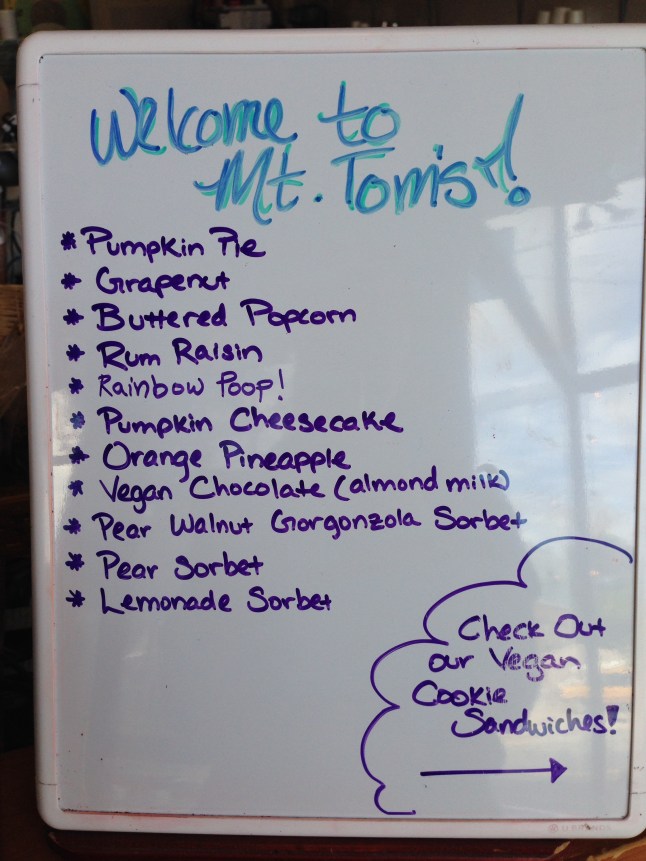 Welcome to
Mt. Tom's!
* Pumpkin Pie
* Grapenut
* Buttered Popcorn
* Rum Raisin
* Rainbow Poop!
* Pumpkin Cheesecake
* Orange Pineapple
* Vegan Chocolate (almond milk)
* Pear Walnut Gorgonzola Sorbet
* Pear Sorbet
* Lemonade Sorbet
Check Out
our Vegan
Cookie
Sandwiches!